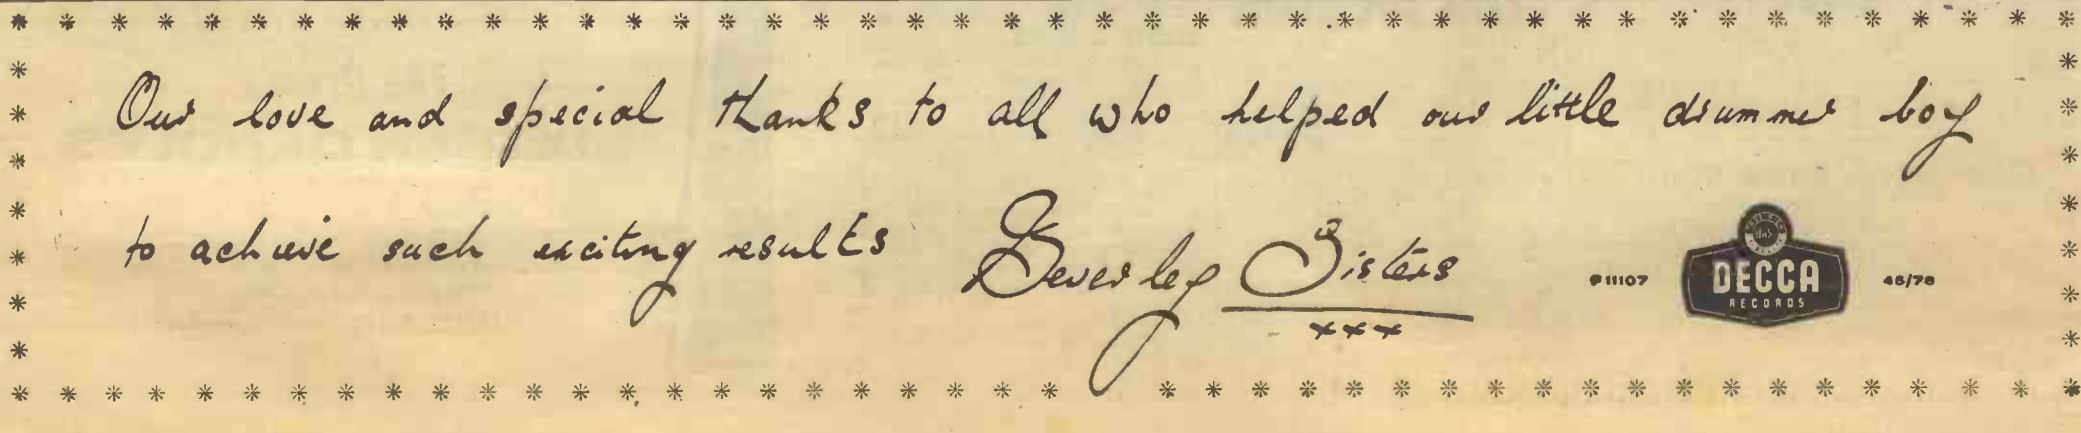 Our love and special thanks to all who helped our little drummer boy
to achieve such exciting results Beverley Sisters
xxx
F11107 DECCA RECORDS 45/78